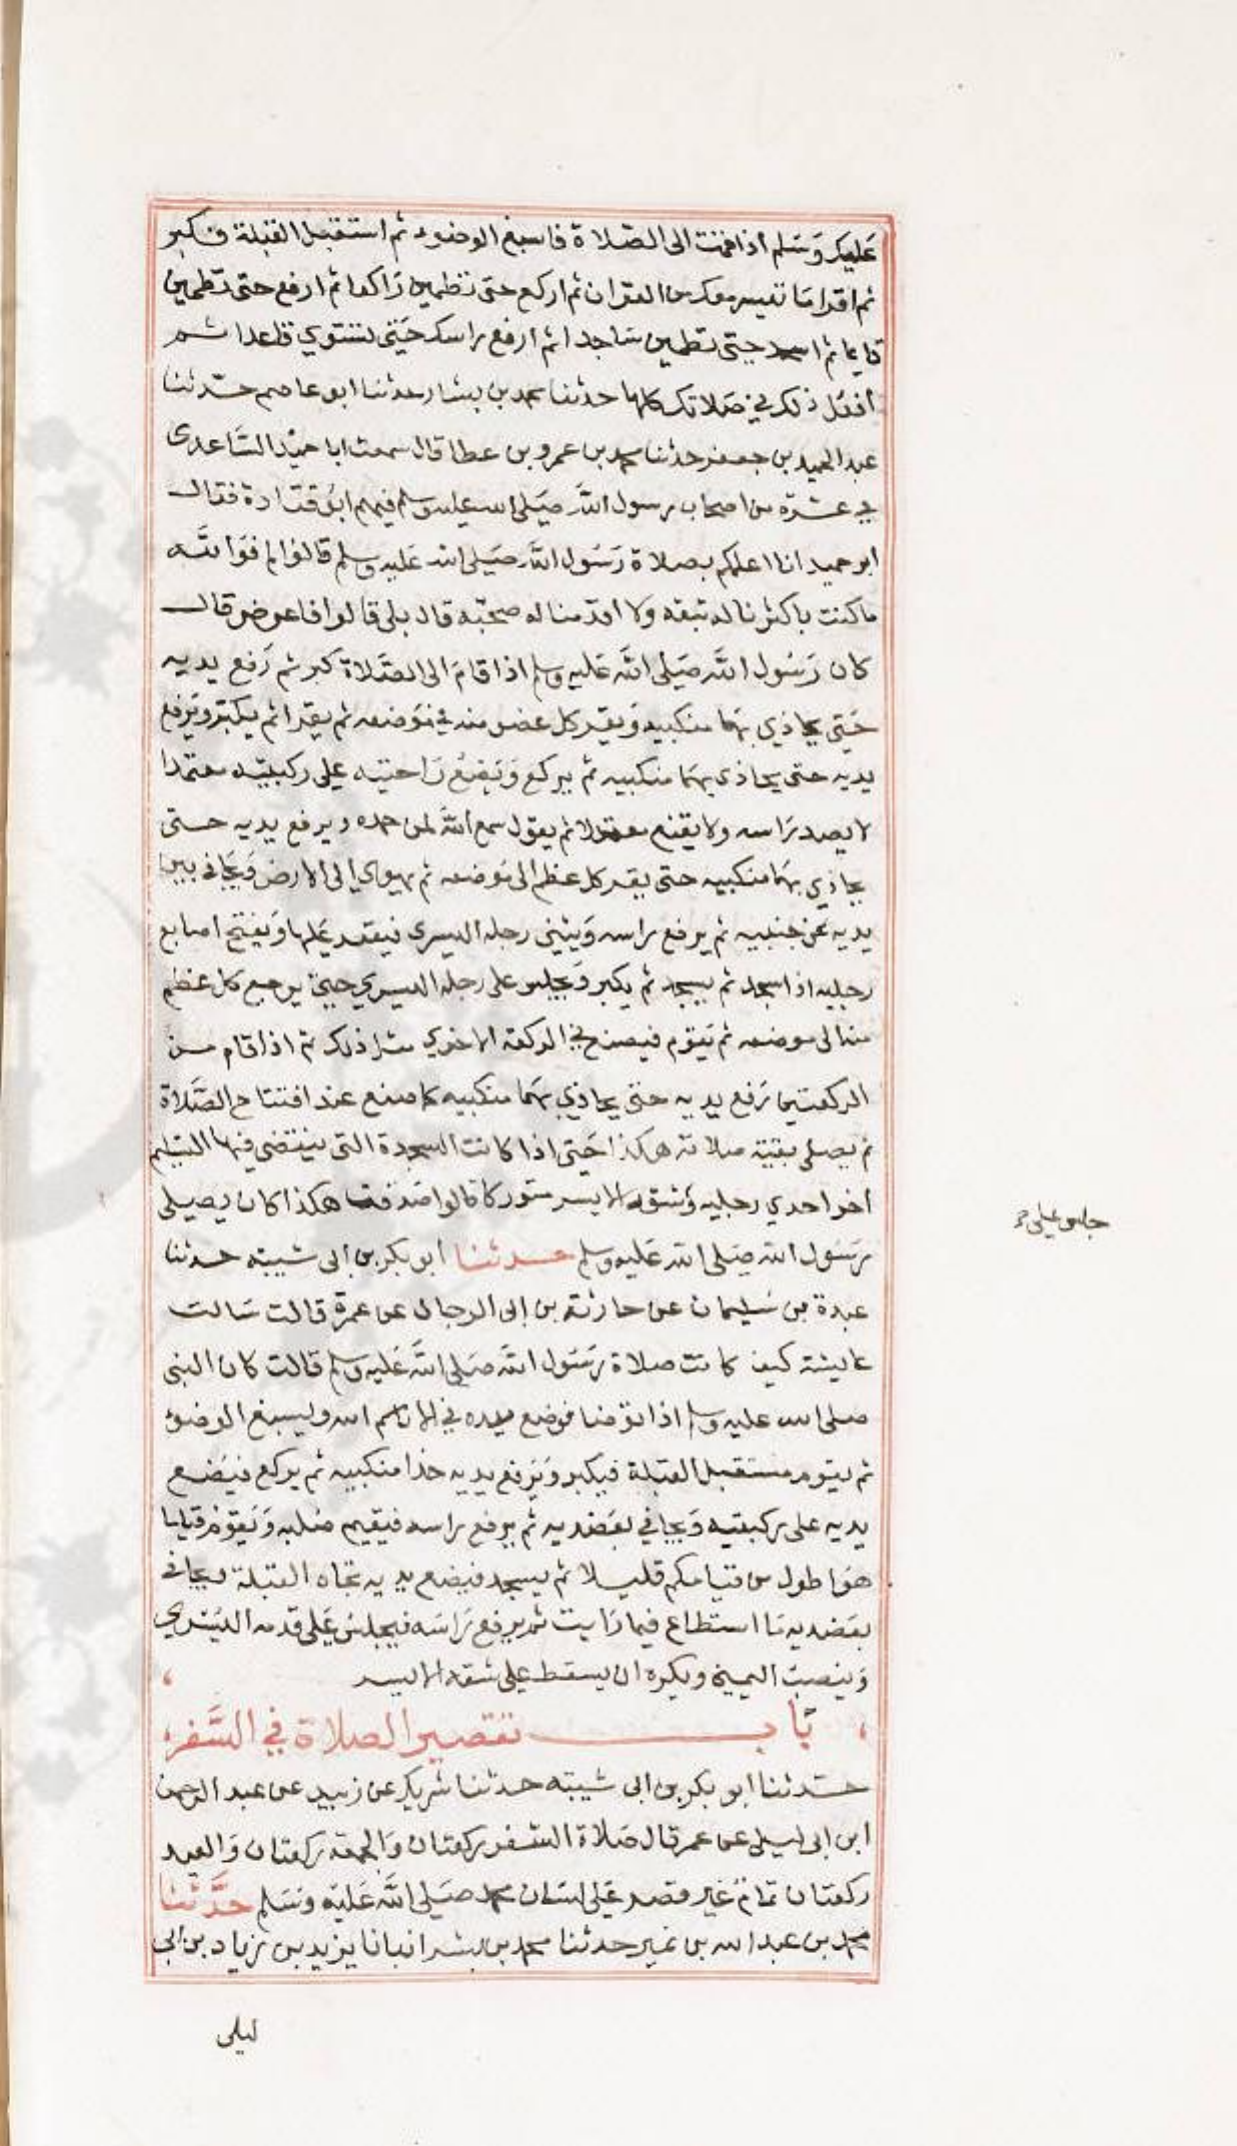 عليه وسلم اذا قمت الى الصلاة فاسبغ الوضوء ثم استقبل القبلة فكبر
ثم اقرا ما تيسر معك من القران ثم اركع حتى تطمين راكعا ثم ارفع حتى تطمين
قايما ثم اسجد حتى تطمين ساجدا ثم ارفع راسك حتى تستوي قاعدا ثم
أفعل ذلك في صلاتك كلها حدثنا محمد بن بشار حدثنا ابو عاصم حدثنا
عبد الحميد بن جعفر حدثنا محمد بن عمرو بن عطا قال سمعت ابا حميد الساعدى
في عشرة من اصحاب رسول الله صلى الله عليه وسلم فيهم ابو قتادة فقال
ابو حميد انا اعلمكم بصلاة رسول الله صلى الله عليه وسلم قالوا لم فوالله
ما كنت باكثرنا له تبعة ولا اقدمنا له صحبة قال بلى قالوا فاعرض قال
كان رسول الله صلى الله عليه وسلم اذا قام الى الصلاة كبر ثم رفع يديه
حتى يحاذي بهما منكبيه ويقر كل عضو منه في موضعه ثم يقرا ثم يكبر ويرفع
يديه حتى يحاذى بهما منكبيه ثم يركع ويضع راحتيه على ركبتيه معتمدا
لا يصب راسه ولا يقنع معتدلا ثم يقول سمع الله لمن حمده ويرفع يديه حتى
يحاذي بهما منكبيه حتى يقر كل عظم الى موضعه ثم يهوي الى الارض ويجافي بين
يديه عن جنبيه ثم يرفع راسه ويثني رجله اليسرى فيقعد عليها ويفتخ اصابع
رجليه اذا سجد ثم يسجد ثم يكبر ويجلس على رجله اليسرى حتى يرجع كل عظم
منه الى موضعه ثم يقوم فيصنع في الركعة الاخرى مثل ذلك ثم اذا قام من
الركعتين رفع يديه حتى يحاذي بهما منكبيه كما صنع عند افتتاح الصلاة
ثم يصلي بقية صلاته هكذا حتى اذا كانت السجدة التى ينقضي فيها التسليم
اخر احدي رجليه وشقه الايسر متوركا قالوا صدقت هكذا كان يصلى
جلس على
رسول الله صلى الله عليه وسلم حدثنا ابو بكر بن ابى شيبة حدثنا
عبدة بن سليمان عن حارثة بن ابى الرجال عن عمرة قالت سالت
عايشة كيف كانت صلاة رسول الله صلى الله عليه وسلم قالت كان النبى
صلى الله عليه وسلم اذا توضا فوضع يده في الانا سم الله ويسبغ الوضوء
ثم يقوم مستقبل القبلة فيكبر ويرفع يديه حذا منكبيه ثم يركع فيضع
يديه على ركبتيه ويجافي بعضديه ثم يرفع راسه فيقيم صلبه ويقوم قياما
هو اطول من قيامكم قليلا ثم يسجد فيضع يديه تجاه القبلة ويجافى
بعضديه ما استطاع فيما رايت ثم يرفع راسه فيجلس على قدمه اليسرى
وينصب اليمنى ويكره ان يسقط على شقه الايسر
باب تقصير الصلاة في السفر
حدثنا ابو بكر بن ابى شيبه حدثنا شريك عن زبيد عن عبد الرحمن
ابن ابى ليلى عن عمر قال صلاة السفر ركعتان والجمعة ركعتان والعيد
ركعتان تمام غير قصر على لسان محمد صلى الله عليه وسلم حدثنا
محمد بن عبد الله بن نمير حدثنا محمد بن بشر انبانا يزيد بن زياد بن ابى
ليلى